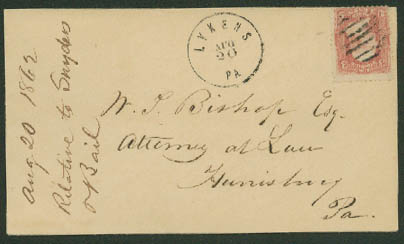 Aug 20 1862
Relative to Snyders
Bail
LYKENS
AUG
20
PA
W. S. Bishop Esq.
Attorney at Law
Harrisburg
Pa.